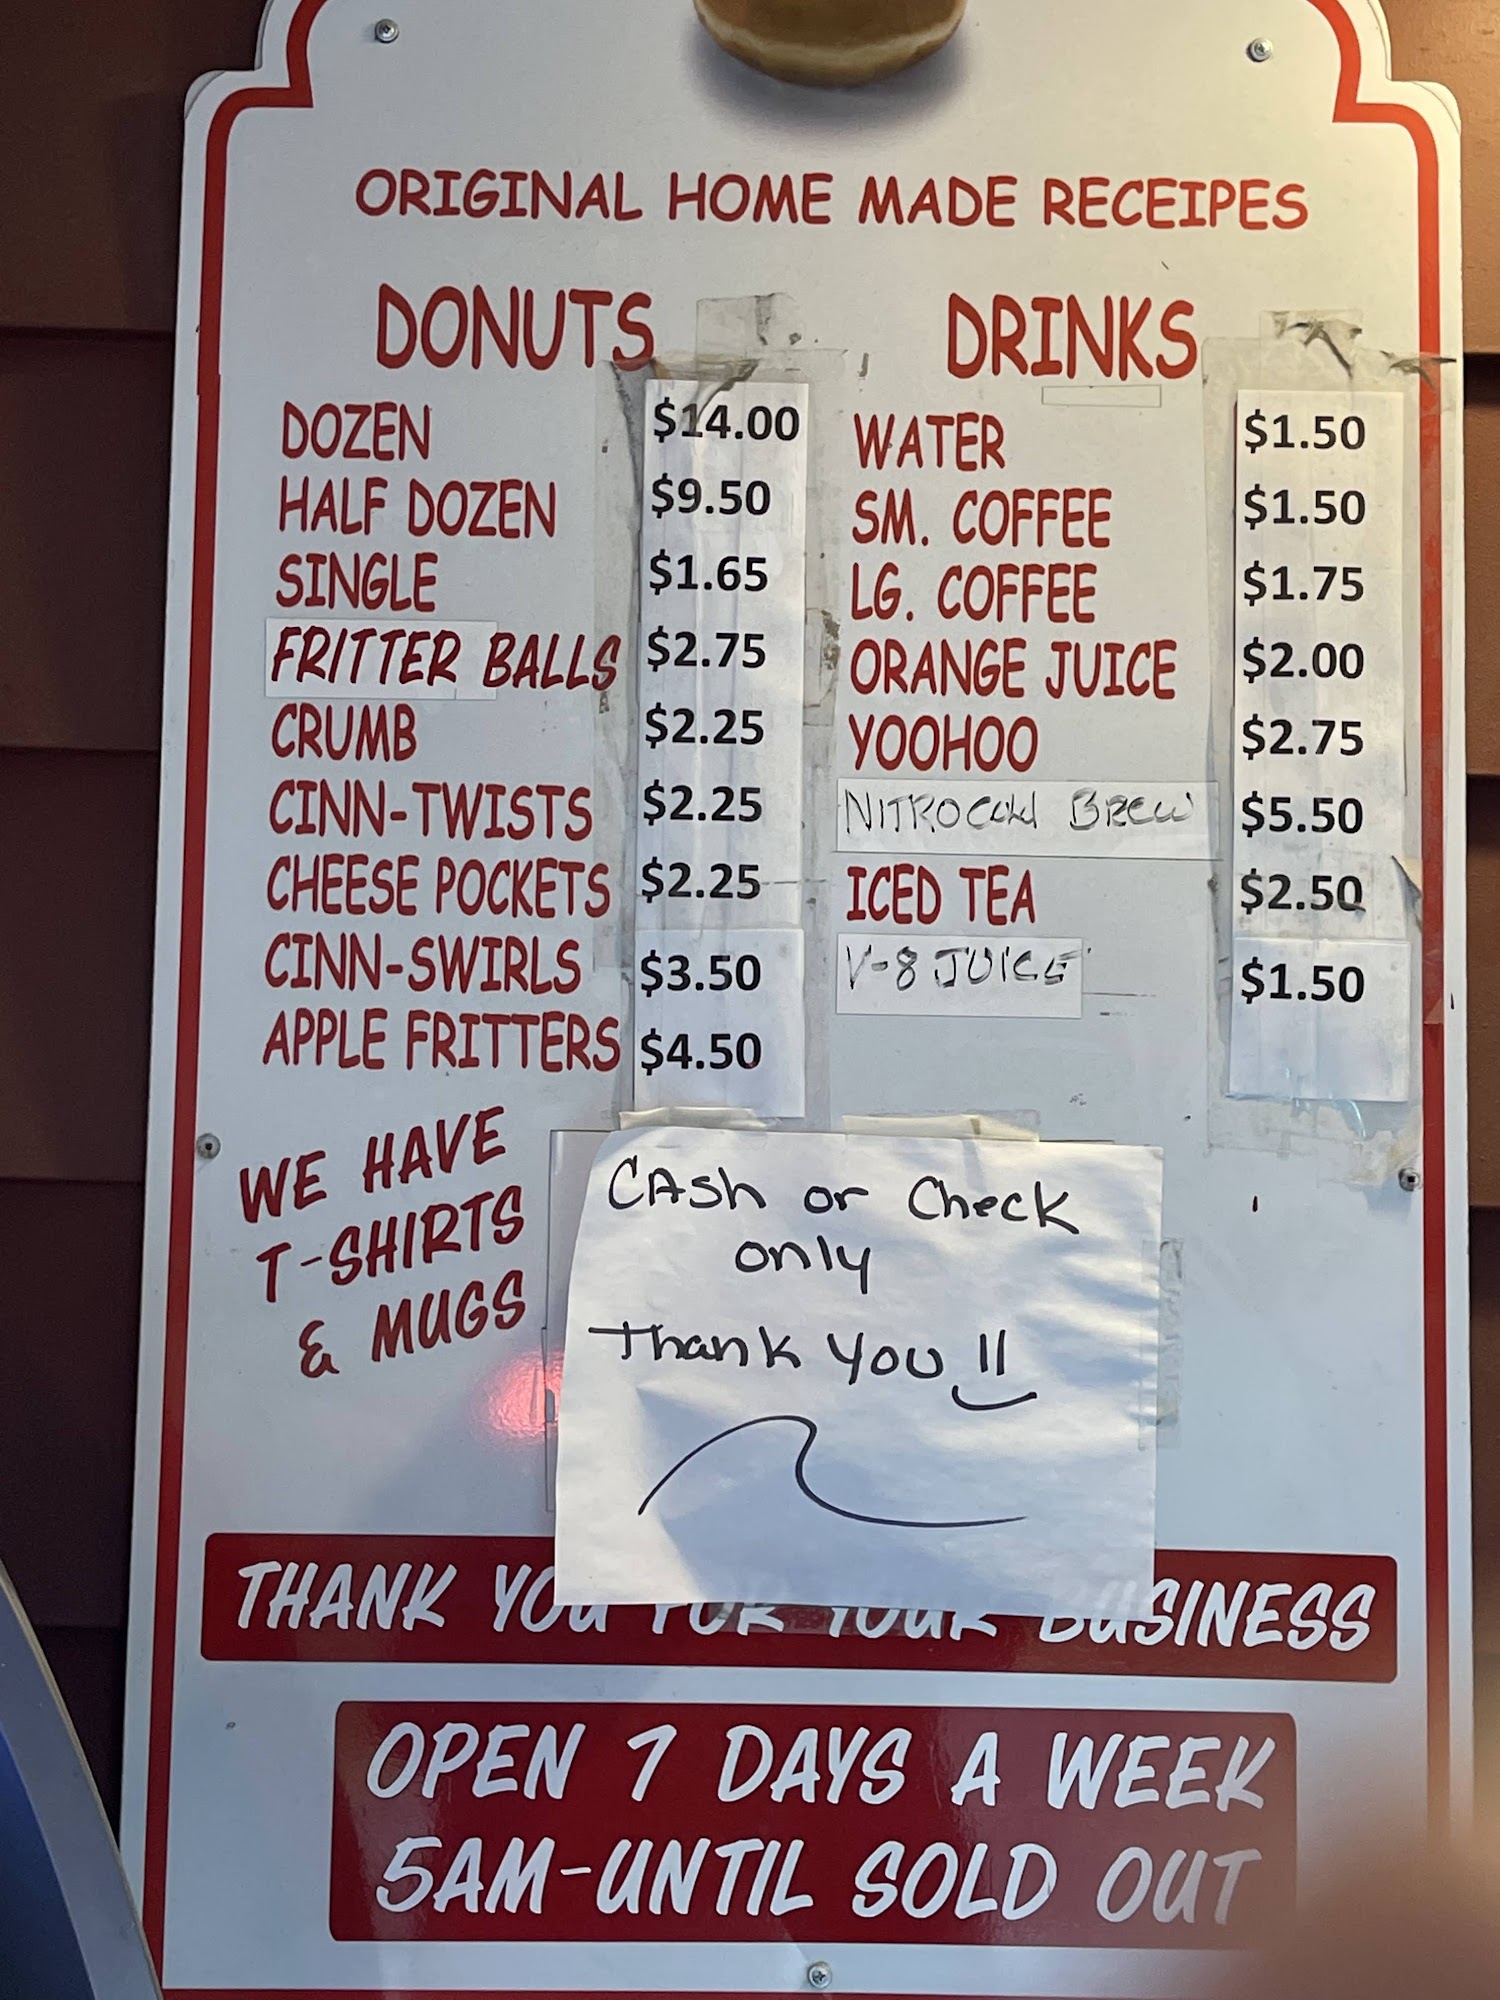 ORIGINAL HOME MADE RECEIPES
DONUTS
DOZEN $14.00
HALF DOZEN $9.50
SINGLE $1.65
FRITTER BALLS $2.75
CRUMB $2.25
CINN-TWISTS $2.25
CHEESE POCKETS $2.25
CINN-SWIRLS $3.50
APPLE FRITTERS $4.50
DRINKS
WATER $1.50
SM. COFFEE $1.50
LG. COFFEE $1.75
ORANGE JUICE $2.00
YOOHOO $2.75
NITRO Cold BREW $5.50
ICED TEA $2.50
V-8 JUICE $1.50
WE HAVE
T-SHIRTS
& MUGS
CAsh or Check
only
Thank You !!
THANK YOU FOR YOUR BUSINESS
OPEN 7 DAYS A WEEK
5AM-UNTIL SOLD OUT